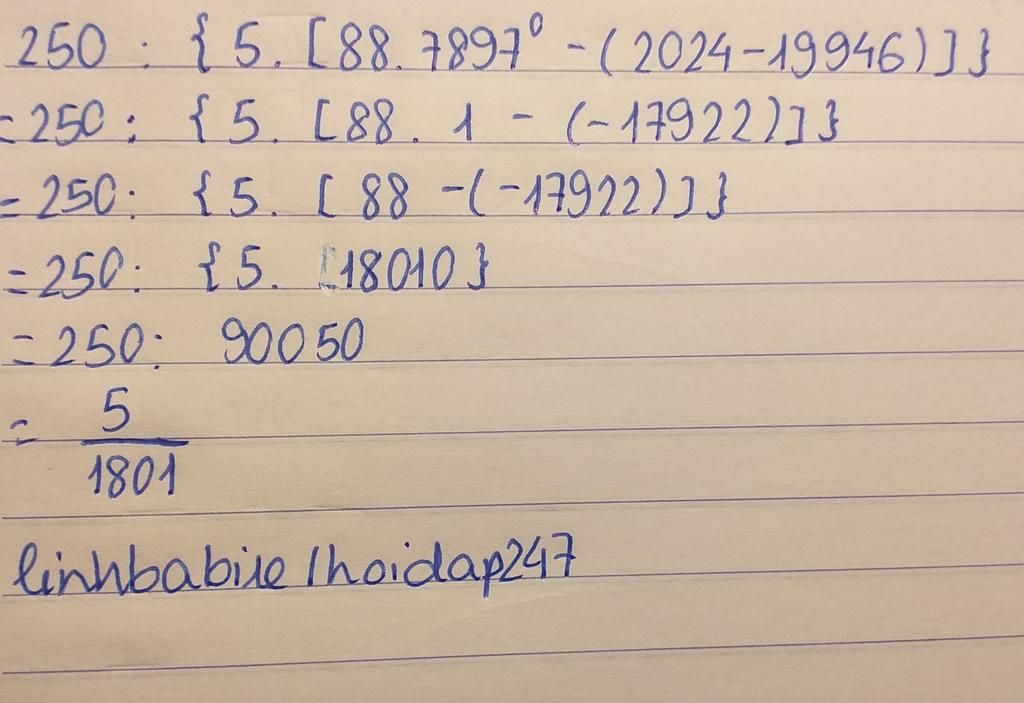 250 : { 5. [88. 7897⁰ - (2024-19946)]}
= 250 : { 5. [88 . 1 - (-17922)]}
= 250: { 5. [ 88 -(-17922)]}
= 250: { 5. [18010}
= 250: 90050
= 5/1801
linhbabie/hoidap247